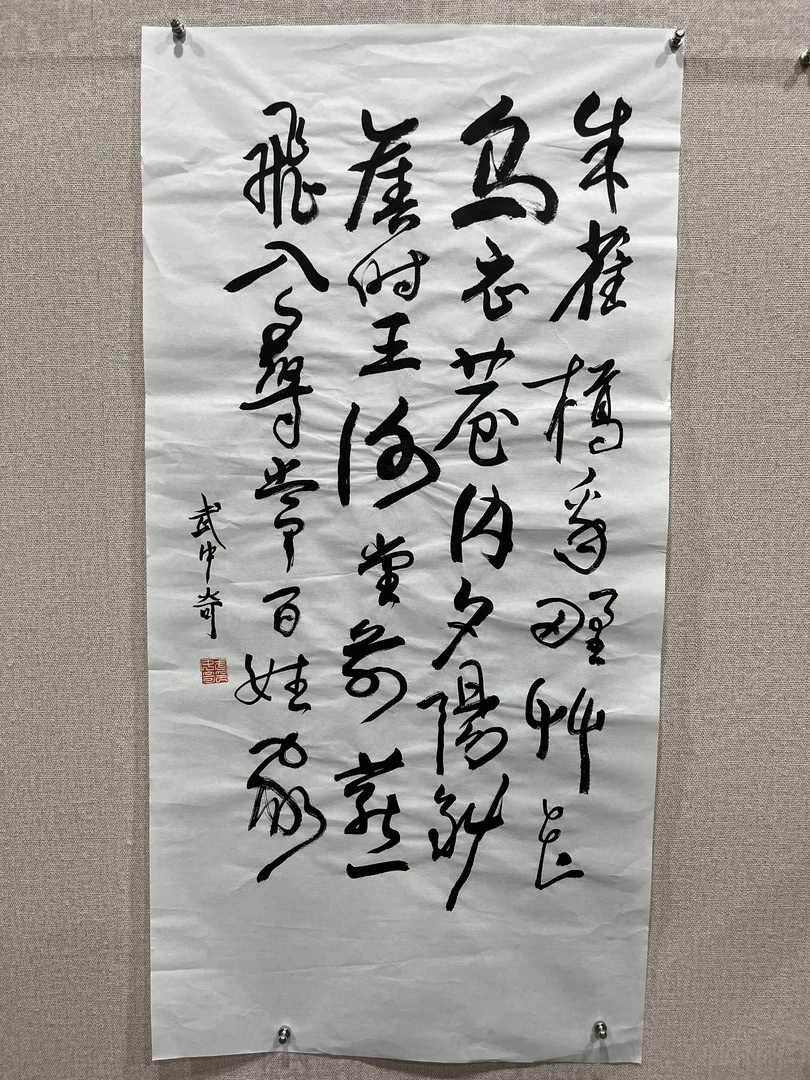 朱雀橋邊野艸長
烏衣巷内夕陽斜
舊時王謝堂前燕
飛入尋常百姓家
武中奇